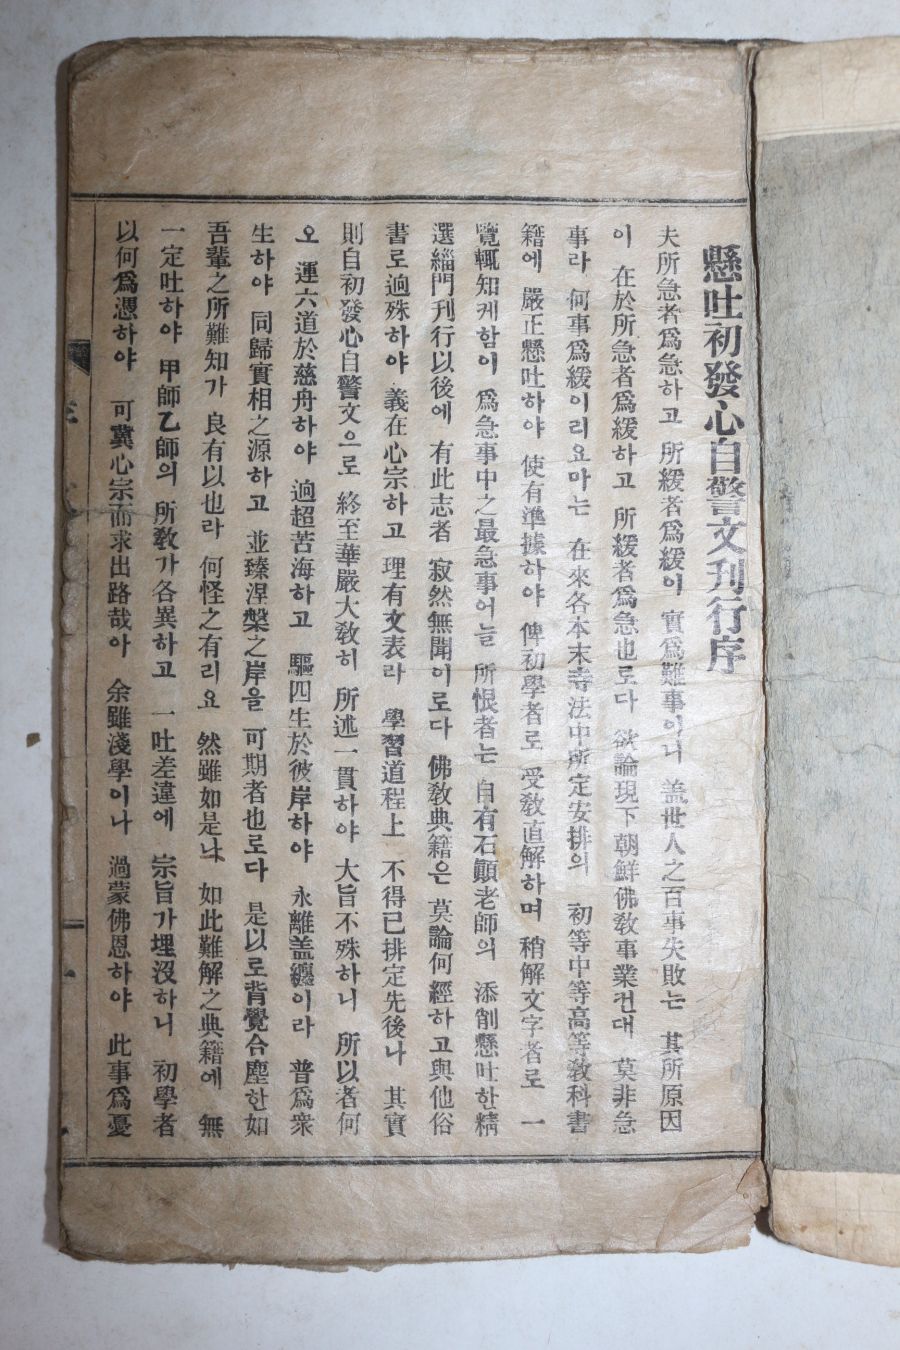 懸吐初發心自警文刊行序
夫所急者爲急하고 所緩者爲緩이 實爲難事이니 盖世人之百事失敗는 其所原因
이 在於所急者爲緩하고 所緩者爲急也로다 欲論現下朝鮮佛敎事業컨대 莫非急
事라 何事爲緩이리요마는 在來各本末寺法中所定安排의 初等中等高等敎科書
籍에 嚴正懸吐하야 使有準據하야 俾初學者로 受敎直解하며 稍解文字者로 一
覽輒知케함이 爲急事中之最急事어늘 所恨者는 自有石顚老師의 添削懸吐한精
選緇門刊行以後에 有此志者 寂然無聞이로다 佛敎典籍은 莫論何經하고與他俗
書로逈殊하야 義在心宗하고 理有文表라 學習道程上 不得已排定先後나 其實
則自初發心自警文으로 終至華嚴大敎히 所述一貫하야 大旨不殊하니 所以者何
오 運六道於慈舟하야 逈超苦海하고 驅四生於彼岸하야 永離盖纏이라 普爲衆
生하야 同歸實相之源하고 並臻涅槃之岸을 可期者也로다 是以로背覺合塵한如
吾輩之所難知가 良有以也라 何怪之有리요 然雖如是나 如此難解之典籍에 無
一定吐하야 甲師乙師의 所敎가各異하고 一吐差違에 宗旨가埋沒하니 初學者
以何爲憑하야 可冀心宗而求出路哉아 余雖淺學이나 過蒙佛恩하야 此事爲憂